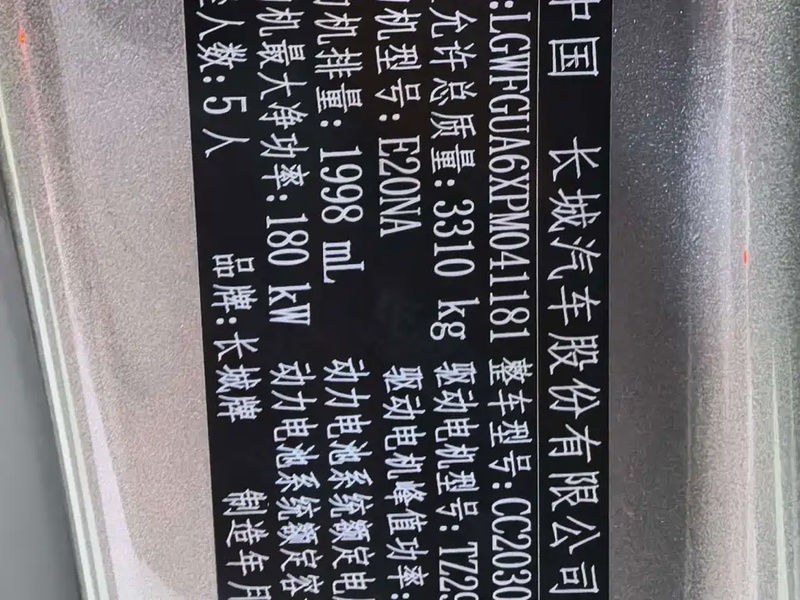 中国 长城汽车股份有限公司
:LGWFGUA6XPM041181 整车型号:CC2030
允许总质量:3310 kg 驱动电机型号:TZ29
机型号:E20NA 驱动电机峰值功率:
机排量:1998 mL 动力电池系统额定电
机最大净功率:180 kW 动力电池系统额定容
人数:5人 品牌:长城牌 制造年月